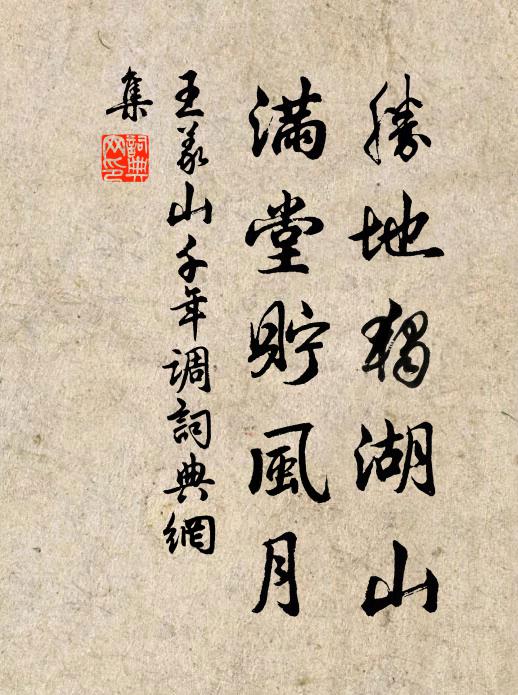 勝地獨湖山
滿堂貯風月
王義山千年調詞典網
集
詞典
网印